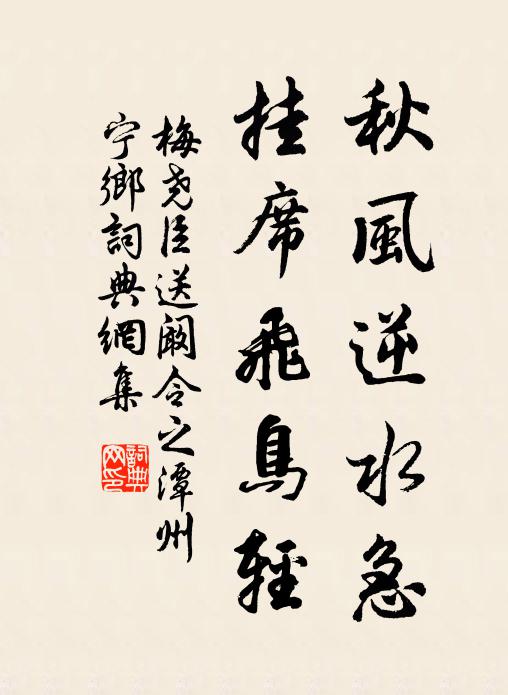 秋風逆水急
挂席飛鳥輕
梅堯臣送阚令之潭州
宁鄉詞典網集
詞典网印